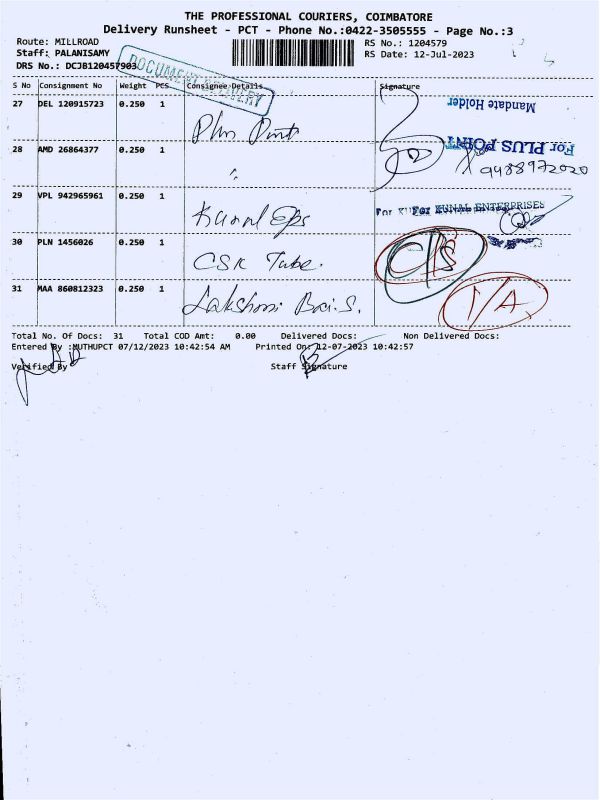 THE PROFESSIONAL COURIERS, COIMBATORE
Delivery Runsheet - PCT - Phone No.:0422-3505555 - Page No.:3
Route: MILLROAD
RS No.: 1204579
Staff: PALANISAMY
RS Date: 12-Jul-2023
DRS No.: DCJB120457903
DOCUMENT DELIVERY
S No Consignment No Weight PCS Consignee Details Signature
27 DEL 120915723 0.250 1 Plus Point
Mandate Holder
For PLUS POINT
28 AMD 26864377 0.250 1 "
9488972020
29 VPL 942965961 0.250 1 Kunal Eps
For KUNAL ENTERPRISES
30 PLN 1456026 0.250 1 CSK Tube.
C/S
31 MAA 860812323 0.250 1 Lakshmi Bai.S.
I/A
Total No. Of Docs: 31 Total COD Amt: 0.00 Delivered Docs: Non Delivered Docs:
Entered By :MUTHUPCT 07/12/2023 10:42:54 AM Printed On: 12-07-2023 10:42:57
Verified By Staff Signature